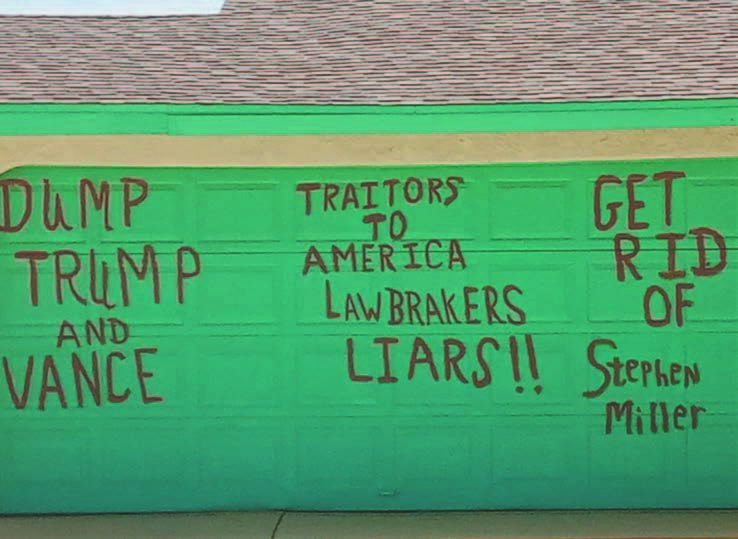 DUMP
TRUMP
AND
VANCE
TRAITORS
TO
AMERICA
LAWBRAKERS
LIARS!!
GET
RID
OF
Stephen
Miller